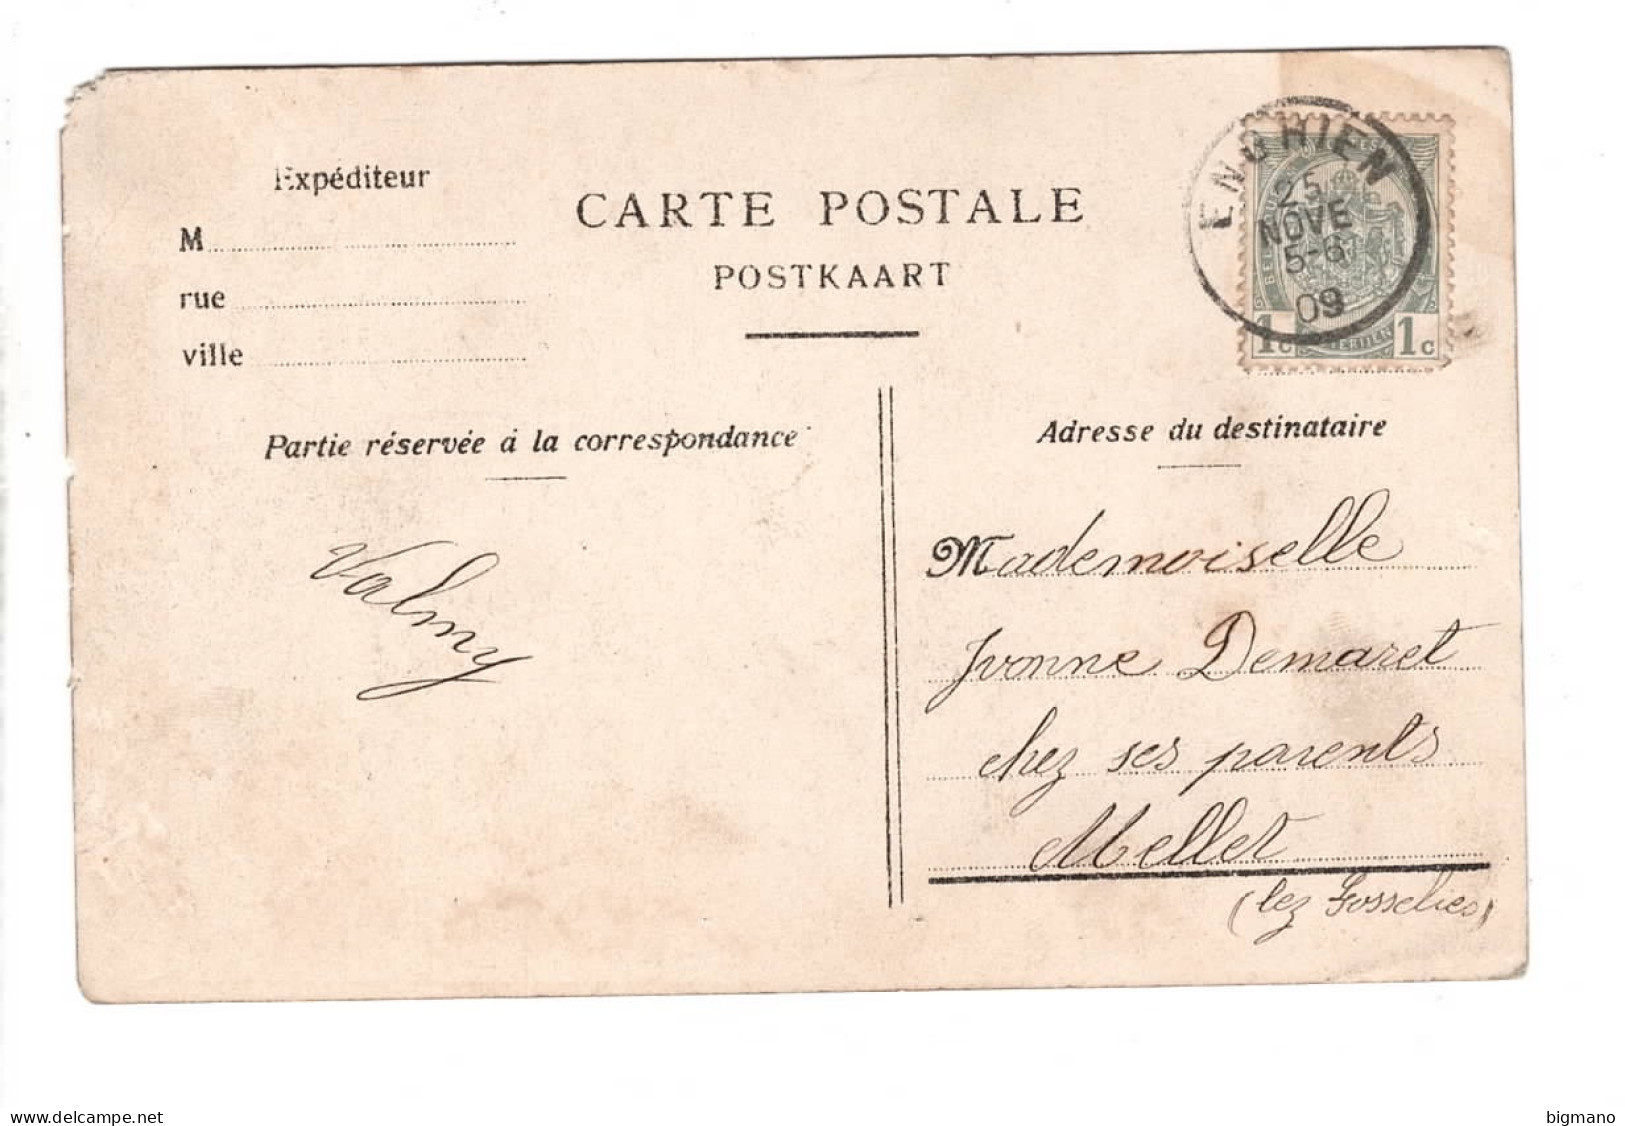 Expéditeur
M
rue
ville
CARTE POSTALE
POSTKAART
ENGHIEN
25
NOVE
5-6
09
1c 1c
Partie réservée à la correspondance
Adresse du destinataire
Valmy
Mademoiselle
Yvonne Demaret
chez ses parents
Mellet
(lez Gosselies)
delcampe.net
bigmano